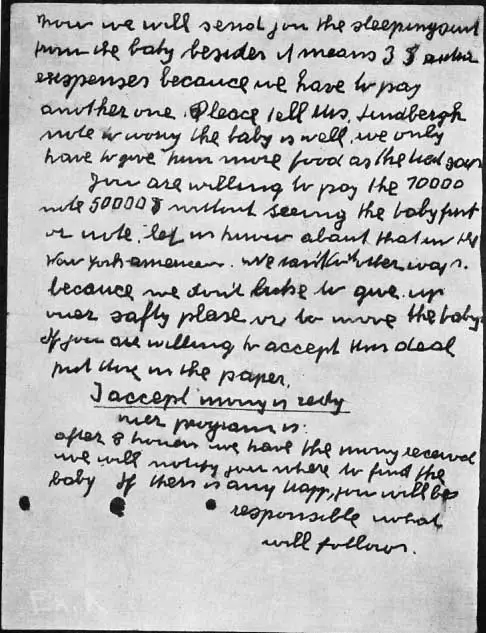 now we will send you the sleepingsuit
from the baby besides it means 3 $ extra
exspenses becauce we have to pay
another one. Pleace tell Mrs. Lindbergh
note to worry the baby is well. we only
have to give him more food as the diet says
You are willing to pay the 70000
note 50000 $ without seeing the baby first
or note. let us know about that in the
New York american. We can't do it other ways.
becauce we don't like to give up
ouer safty plase or to move the baby.
If you are willing to accept this deal
put these in the paper.
I accept mony is redy
ouer program is:
after 8 houers we have the mony received
we will notify you where to find the
baby If thers is any trapp, you will be
responsible what
will follows.